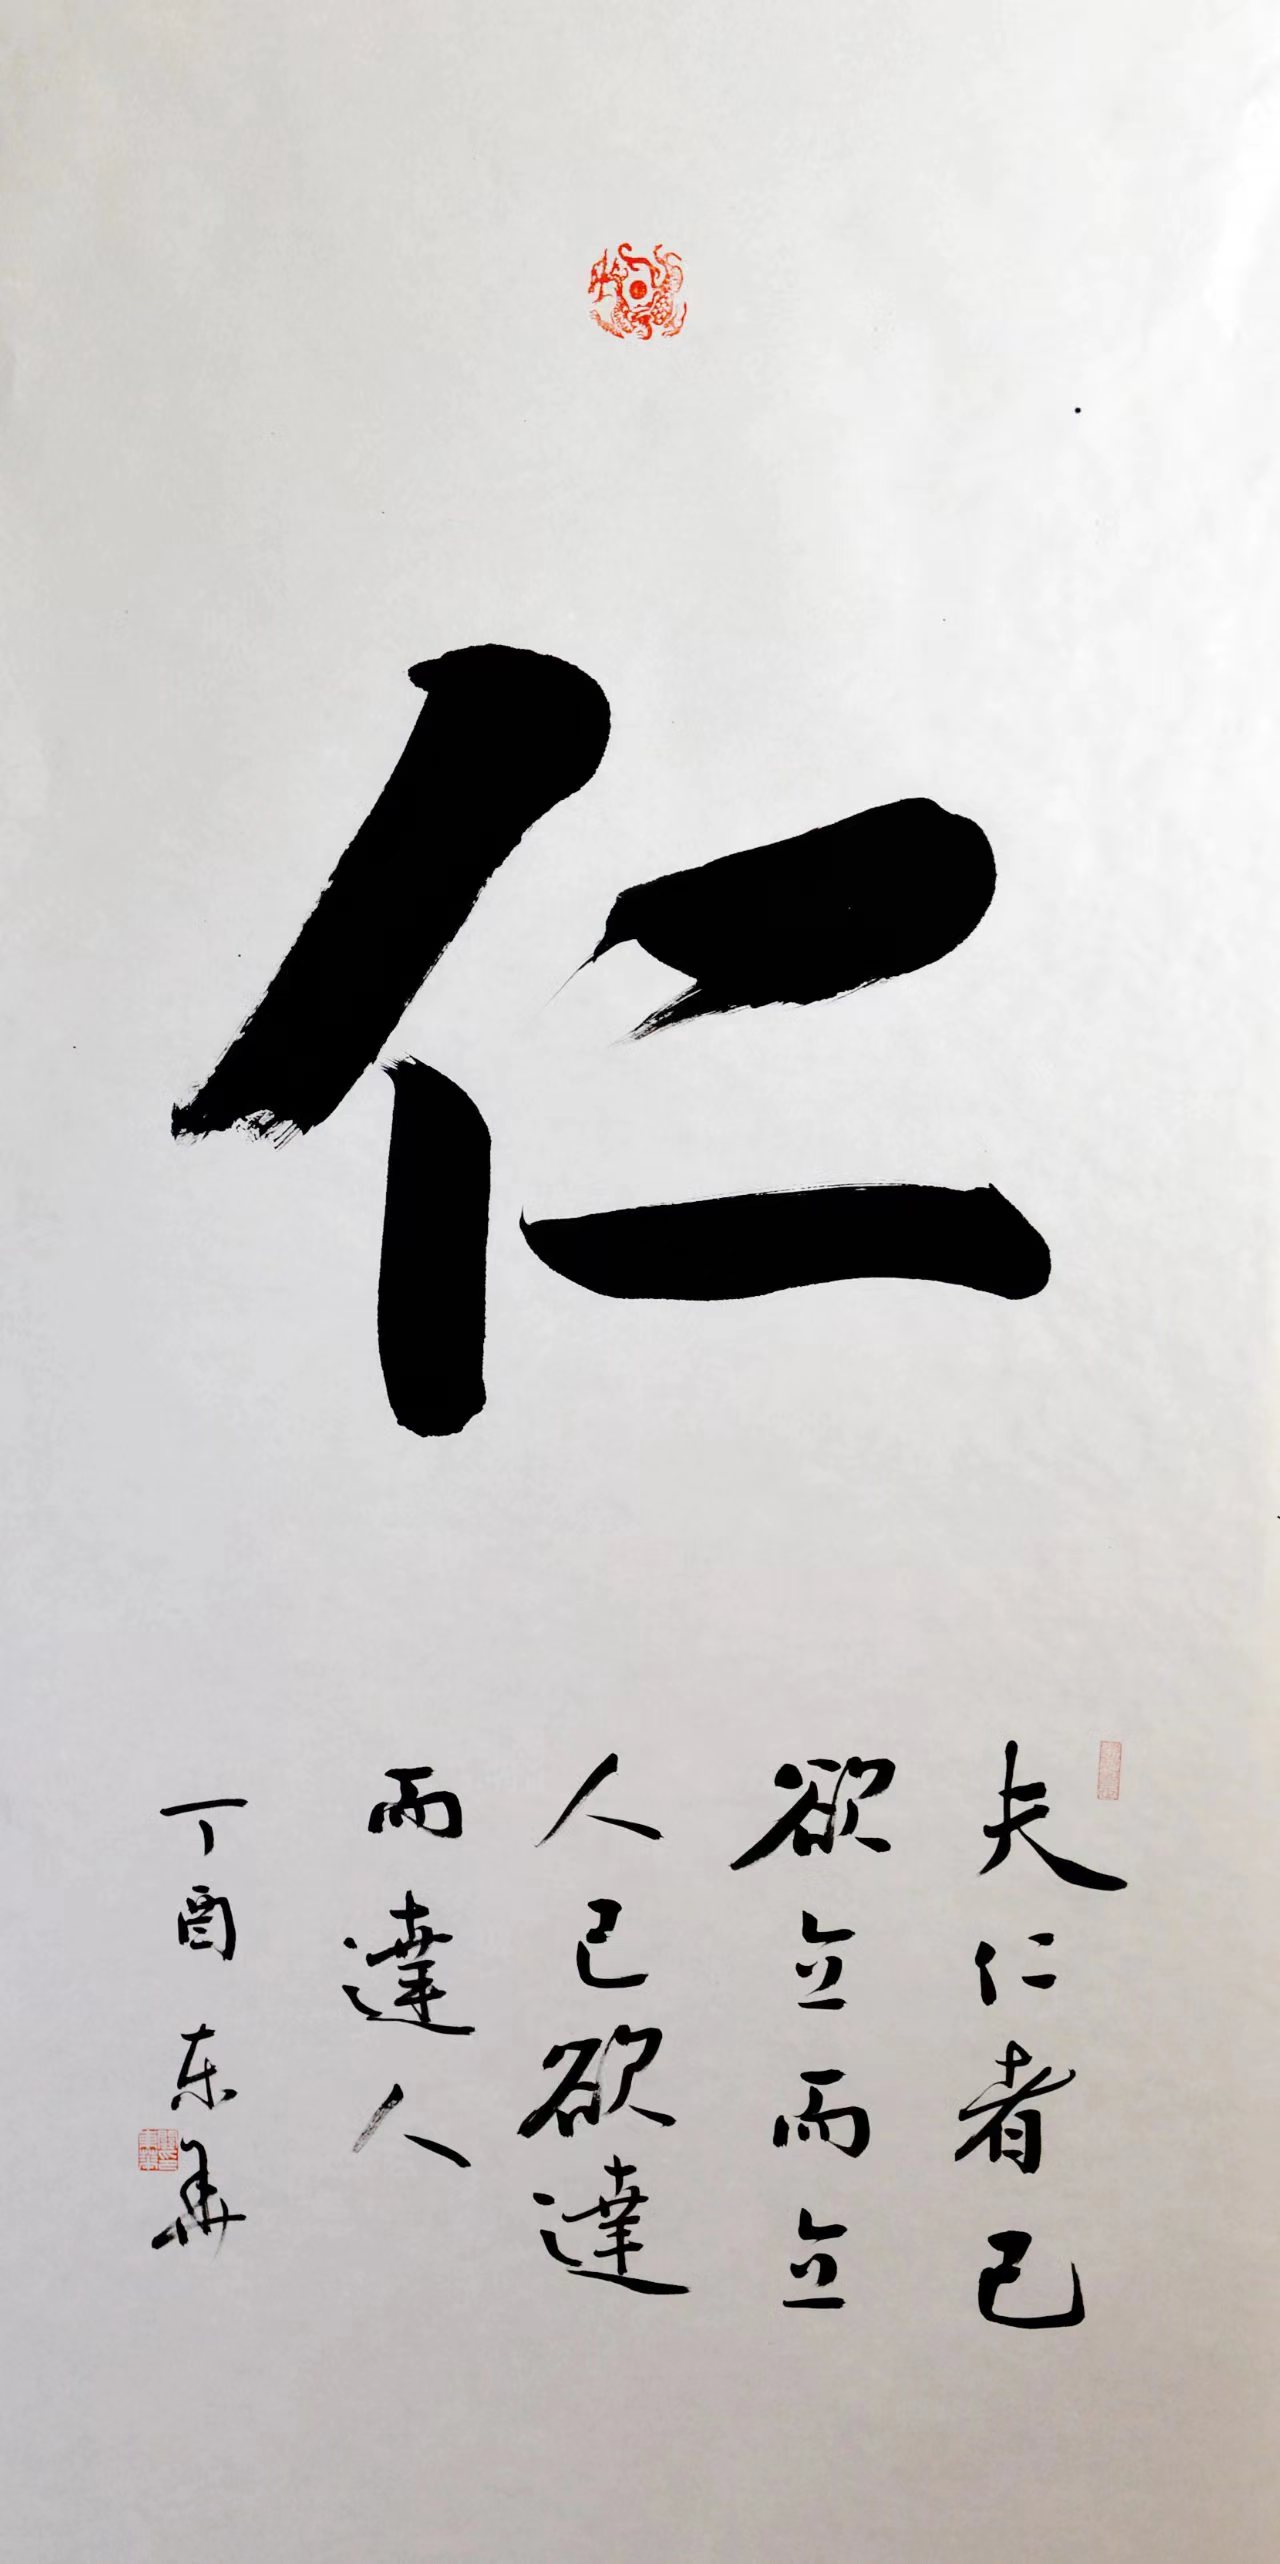 仁
夫仁者己
欲立而立
人己欲達
而達人
丁酉 东华